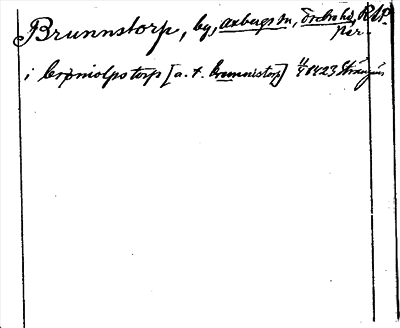 Brunnstorp, by, Axbergs sn, Örebro hd, RAP.
Per.
i bryniolpstorp [a. t. brwnnistorp] 11/4 1423 Strängnäs